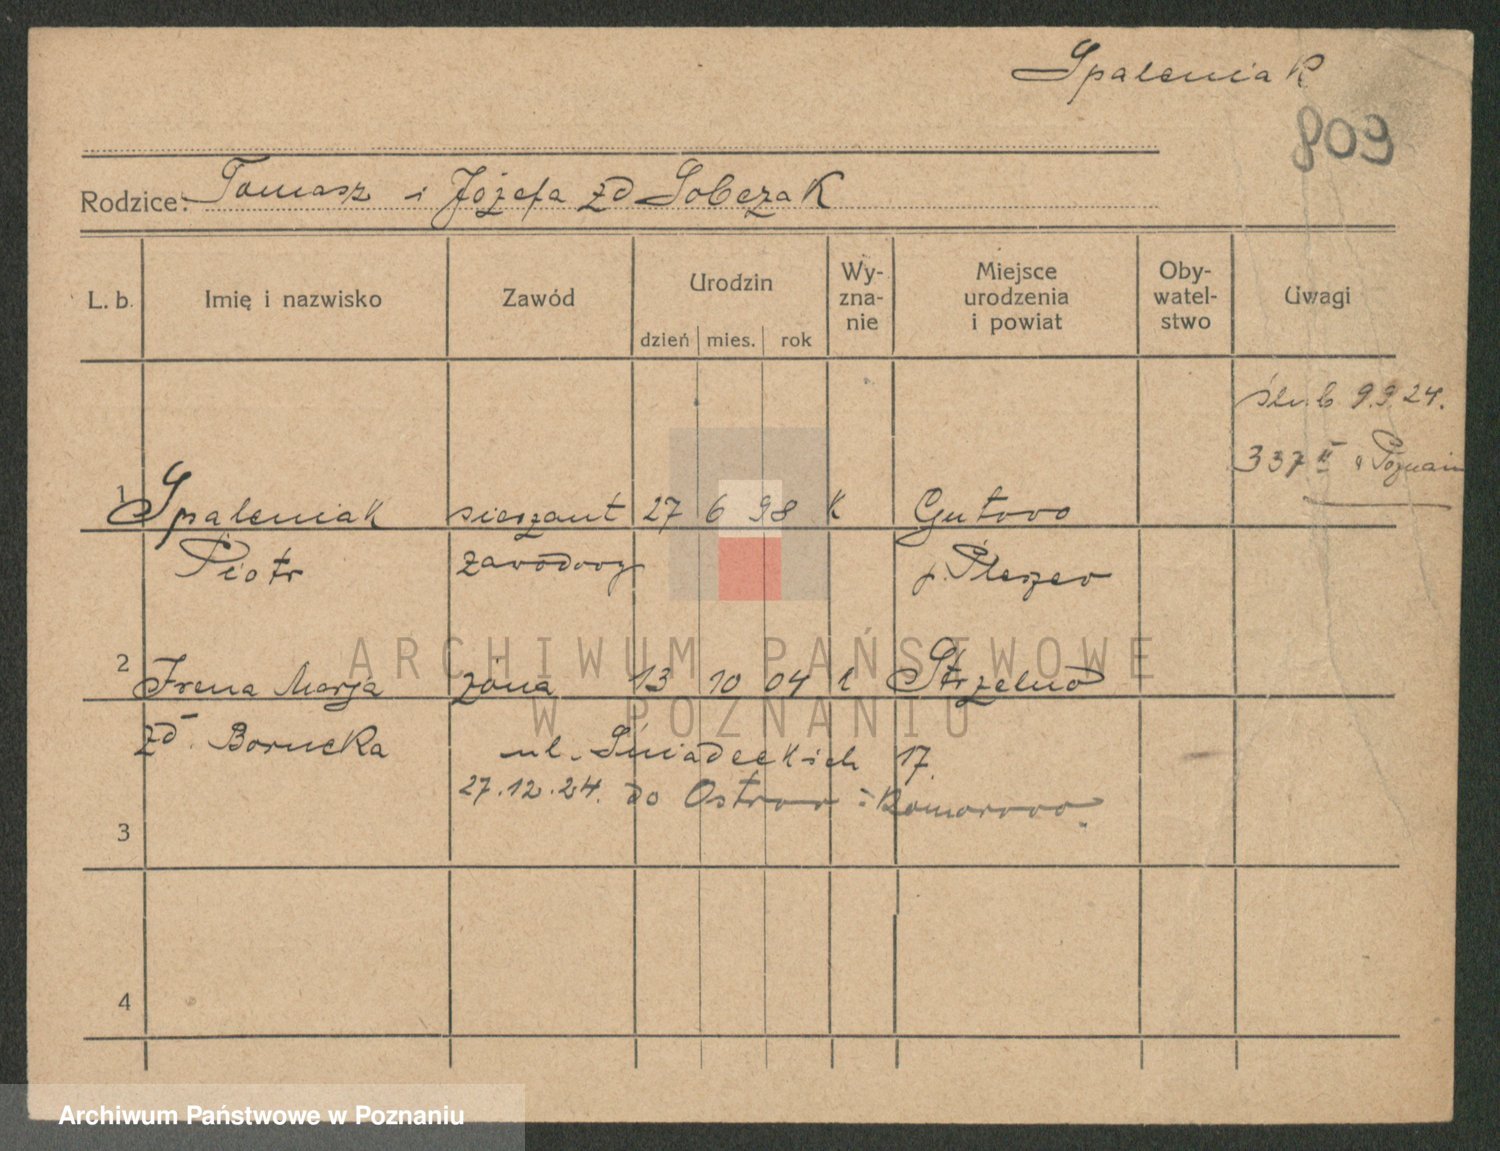 Spaleniak
809
Rodzice: Tomasz i Józefa zd Sobczak
L. b. Imię i nazwisko Zawód Urodzin Wy-zna-nie Miejsce urodzenia i powiat Oby-watel-stwo Uwagi
dzień mies. rok
ślub 9.9.24.
337 II Poznań
1 Spaleniak sierżant 27 6 98 K Gutowo
Piotr zawodowy p. Pleszew
ARCHIWUM PAŃSTWOWE
W POZNANIU
2 Irena Marja żona 13 10 04 k Strzelno
zd. Borucka ul. Śniadeckich 17.
27.12.24. do Ostrow - Komorowo.
3
4
Archiwum Państwowe w Poznaniu